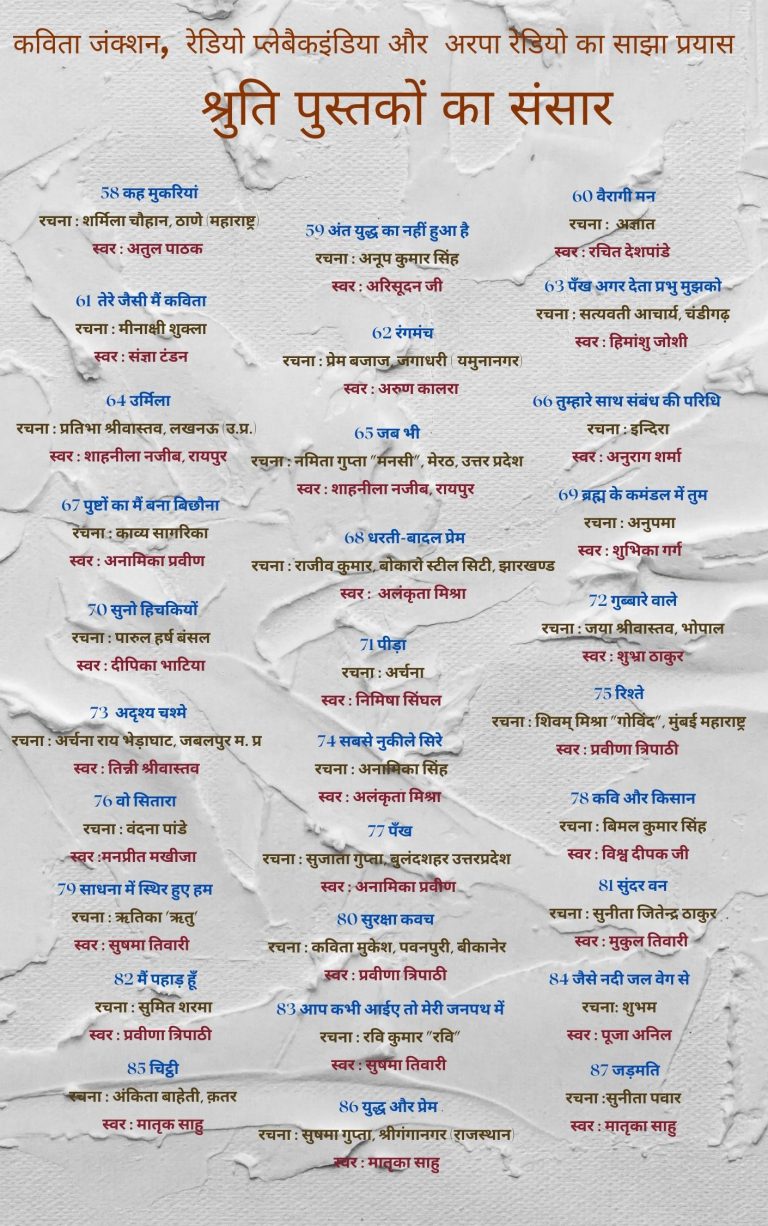 कविता जंक्शन, रेडियो प्लेबैकइंडिया और अरपा रेडियो का साझा प्रयास
श्रुति पुस्तकों का संसार
58 कह मुकरियां
रचना : शर्मिला चौहान, ठाणे (महाराष्ट्र)
स्वर : अतुल पाठक
59 अंत युद्ध का नहीं हुआ है
रचना : अनूप कुमार सिंह
स्वर : अरिसूदन जी
60 वैरागी मन
रचना : अज्ञात
स्वर : रचित देशपांडे
61 तेरे जैसी मैं कविता
रचना : मीनाक्षी शुक्ला
स्वर : संज्ञा टंडन
62 रंगमंच
रचना : प्रेम बजाज, जगाधरी ( यमुनानगर)
स्वर : अरुण कालरा
63 पँख अगर देता प्रभु मुझको
रचना : सत्यवती आचार्य, चंडीगढ़
स्वर : हिमांशु जोशी
64 उर्मिला
रचना : प्रतिभा श्रीवास्तव, लखनऊ (उ.प्र.)
स्वर : शाहनीला नजीब, रायपुर
65 जब भी
रचना : नमिता गुप्ता "मनसी", मेरठ, उत्तर प्रदेश
स्वर : शाहनीला नजीब, रायपुर
66 तुम्हारे साथ संबंध की परिधि
रचना : इन्दिरा
स्वर : अनुराग शर्मा
67 पुष्टों का मैं बना बिछौना
रचना : काव्य सागरिका
स्वर : अनामिका प्रवीण
68 धरती-बादल प्रेम
रचना : राजीव कुमार, बोकारो स्टील सिटी, झारखण्ड
स्वर : अलंकृता मिश्रा
69 ब्रह्म के कमंडल में तुम
रचना : अनुपमा
स्वर : शुभिका गर्ग
70 सुनो हिचकियों
रचना : पारुल हर्ष बंसल
स्वर : दीपिका भाटिया
71 पीड़ा
रचना : अर्चना
स्वर : निमिषा सिंघल
72 गुब्बारे वाले
रचना : जया श्रीवास्तव, भोपाल
स्वर : शुभ्रा ठाकुर
73 अदृश्य चश्मे
रचना : अर्चना राय भेड़ाघाट, जबलपुर म. प्र
स्वर : तिन्नी श्रीवास्तव
74 सबसे नुकीले सिरे
रचना : अनामिका सिंह
स्वर : अलंकृता मिश्रा
75 रिश्ते
रचना : शिवम् मिश्रा "गोविंद", मुंबई महाराष्ट्र
स्वर : प्रवीणा त्रिपाठी
76 वो सितारा
रचना : वंदना पांडे
स्वर :मनप्रीत मखीजा
77 पँख
रचना : सुजाता गुप्ता, बुलंदशहर उत्तरप्रदेश
स्वर : अनामिका प्रवीण
78 कवि और किसान
रचना : बिमल कुमार सिंह
स्वर : विश्व दीपक जी
79 साधना में स्थिर हुए हम
रचना : ऋतिका 'ऋतु'
स्वर : सुषमा तिवारी
80 सुरक्षा कवच
रचना : कविता मुकेश, पवनपुरी, बीकानेर
स्वर : प्रवीणा त्रिपाठी
81 सुंदर वन
रचना : सुनीता जितेन्द्र ठाकुर
स्वर : मुकुल तिवारी
82 मैं पहाड़ हूँ
रचना : सुमित शरमा
स्वर : प्रवीणा त्रिपाठी
83 आप कभी आईए तो मेरी जनपथ में
रचना : रवि कुमार "रवि"
स्वर : सुषमा तिवारी
84 जैसे नदी जल वेग से
रचना: शुभम
स्वर : पूजा अनिल
85 चिट्ठी
रचना : अंकिता बाहेती, क़तर
स्वर : मातृक साहु
86 युद्ध और प्रेम
रचना : सुषमा गुप्ता, श्रीगंगानगर (राजस्थान)
स्वर : मातृका साहु
87 जड़मति
रचना :सुनीता पवार
स्वर : मातृका साहु